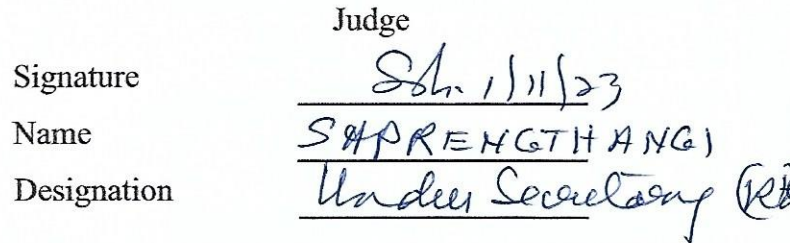 Judge
Signature 1/11/23
Name SAPRENGTHANGI
Designation Under Secretary